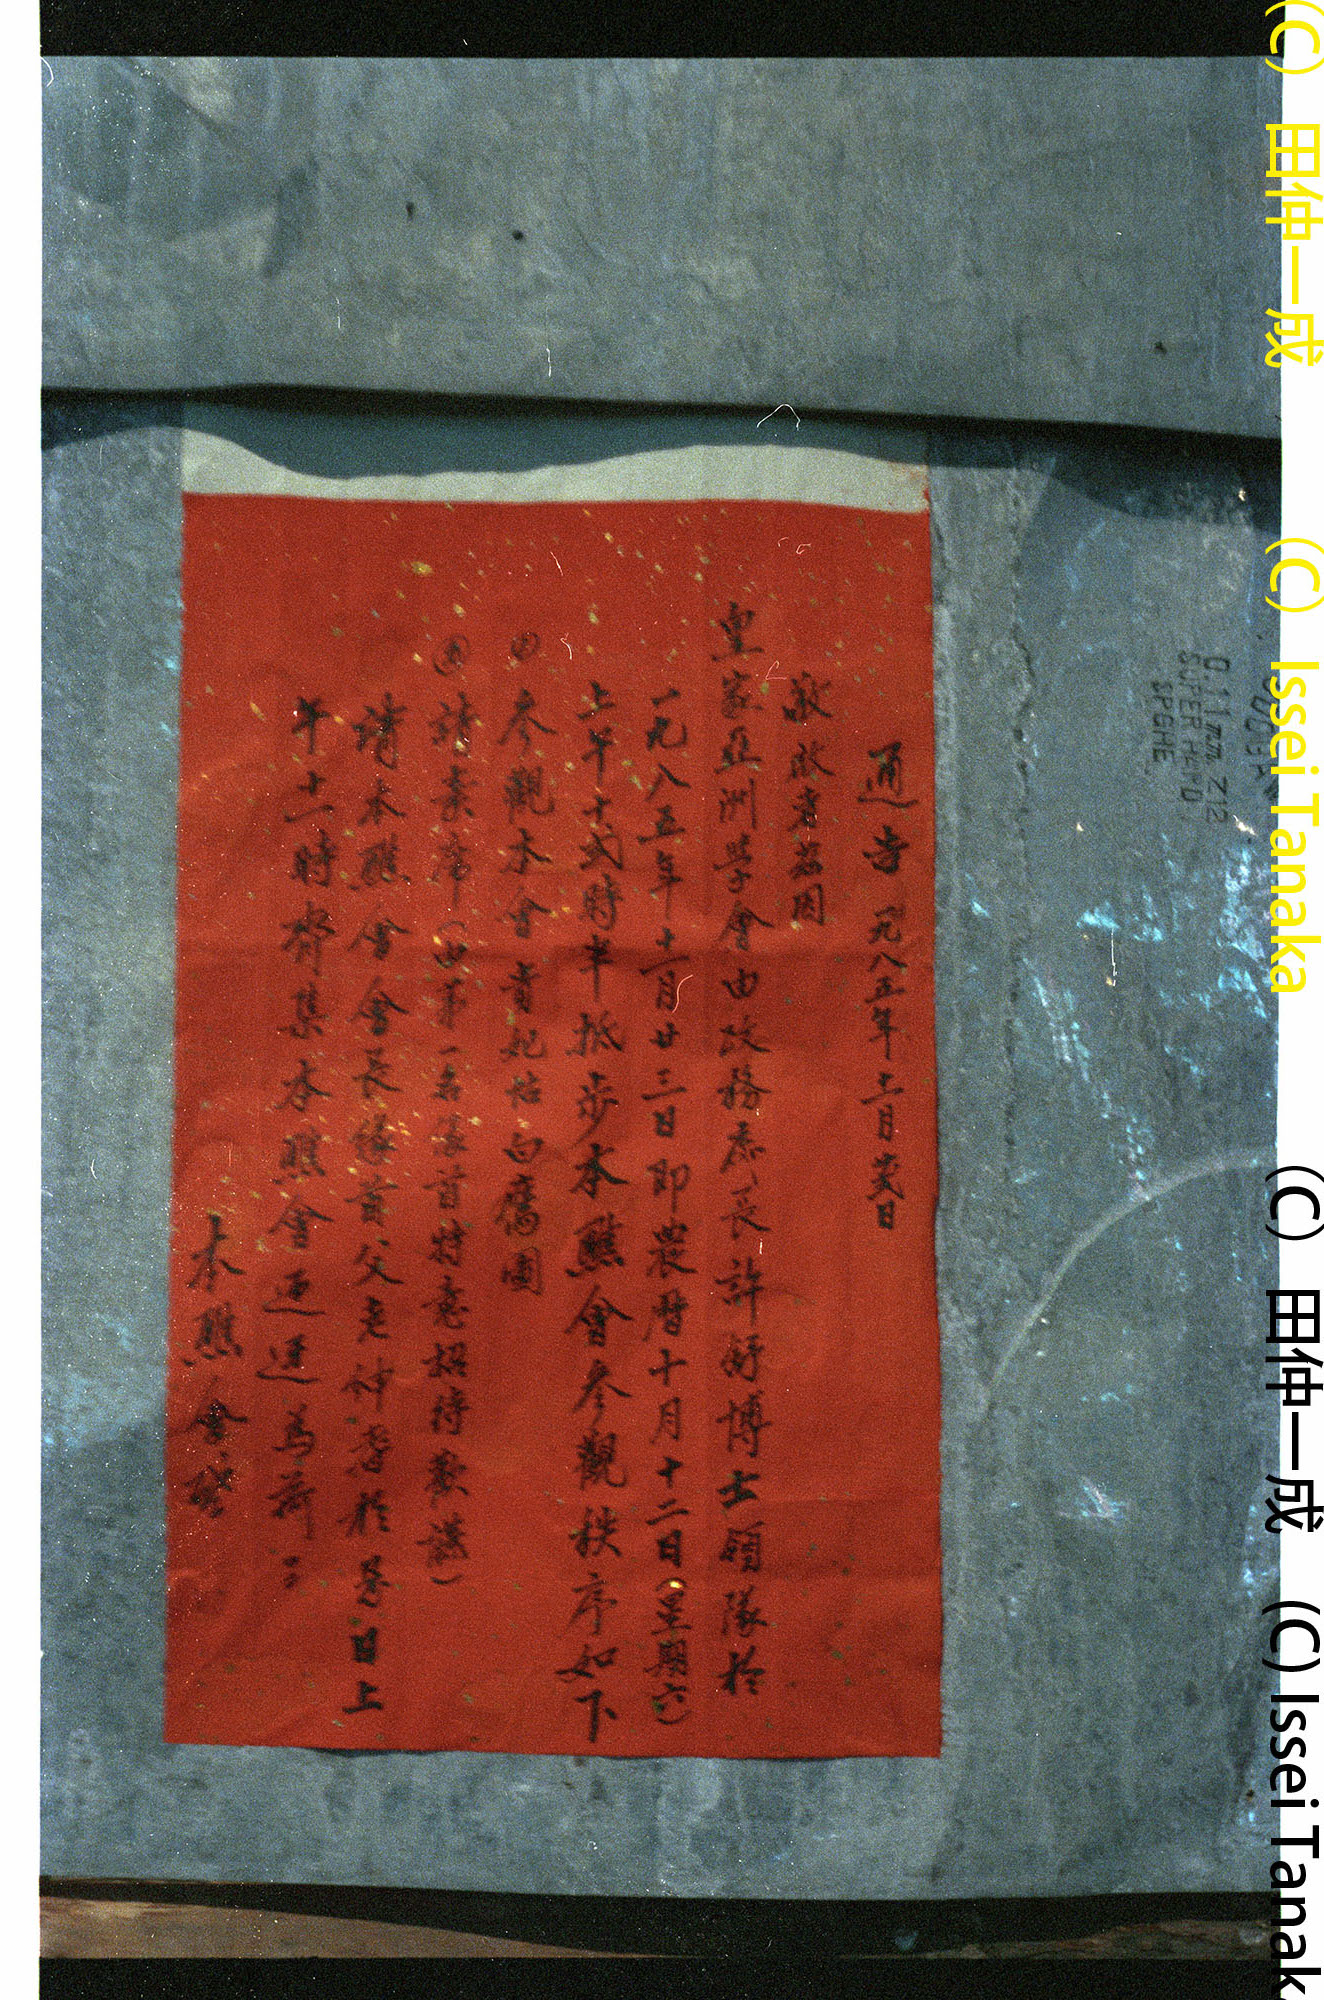 通告 一九八五年十一月廿八日
敬啟者茲因
皇家亞洲學會由政務處長許舒博士領隊於
一九八五年十一月廿三日即農曆十月十二日(星期六)
上午十弍時半抵步本醮會參觀秩序如下
參觀本會青蛇姑白
請素席(由第一名緣首特意招待歡讌)
請本醮會會長緣首父老神耆於是日上
午十一時齊集本醮會逥迎為荷
本醮會啓
0.11mm Z12
SUPER HEMD
SPGHE
(C) 田仲一成 (C) Issei Tanaka
(C) 田仲一成 (C) Issei Tanak